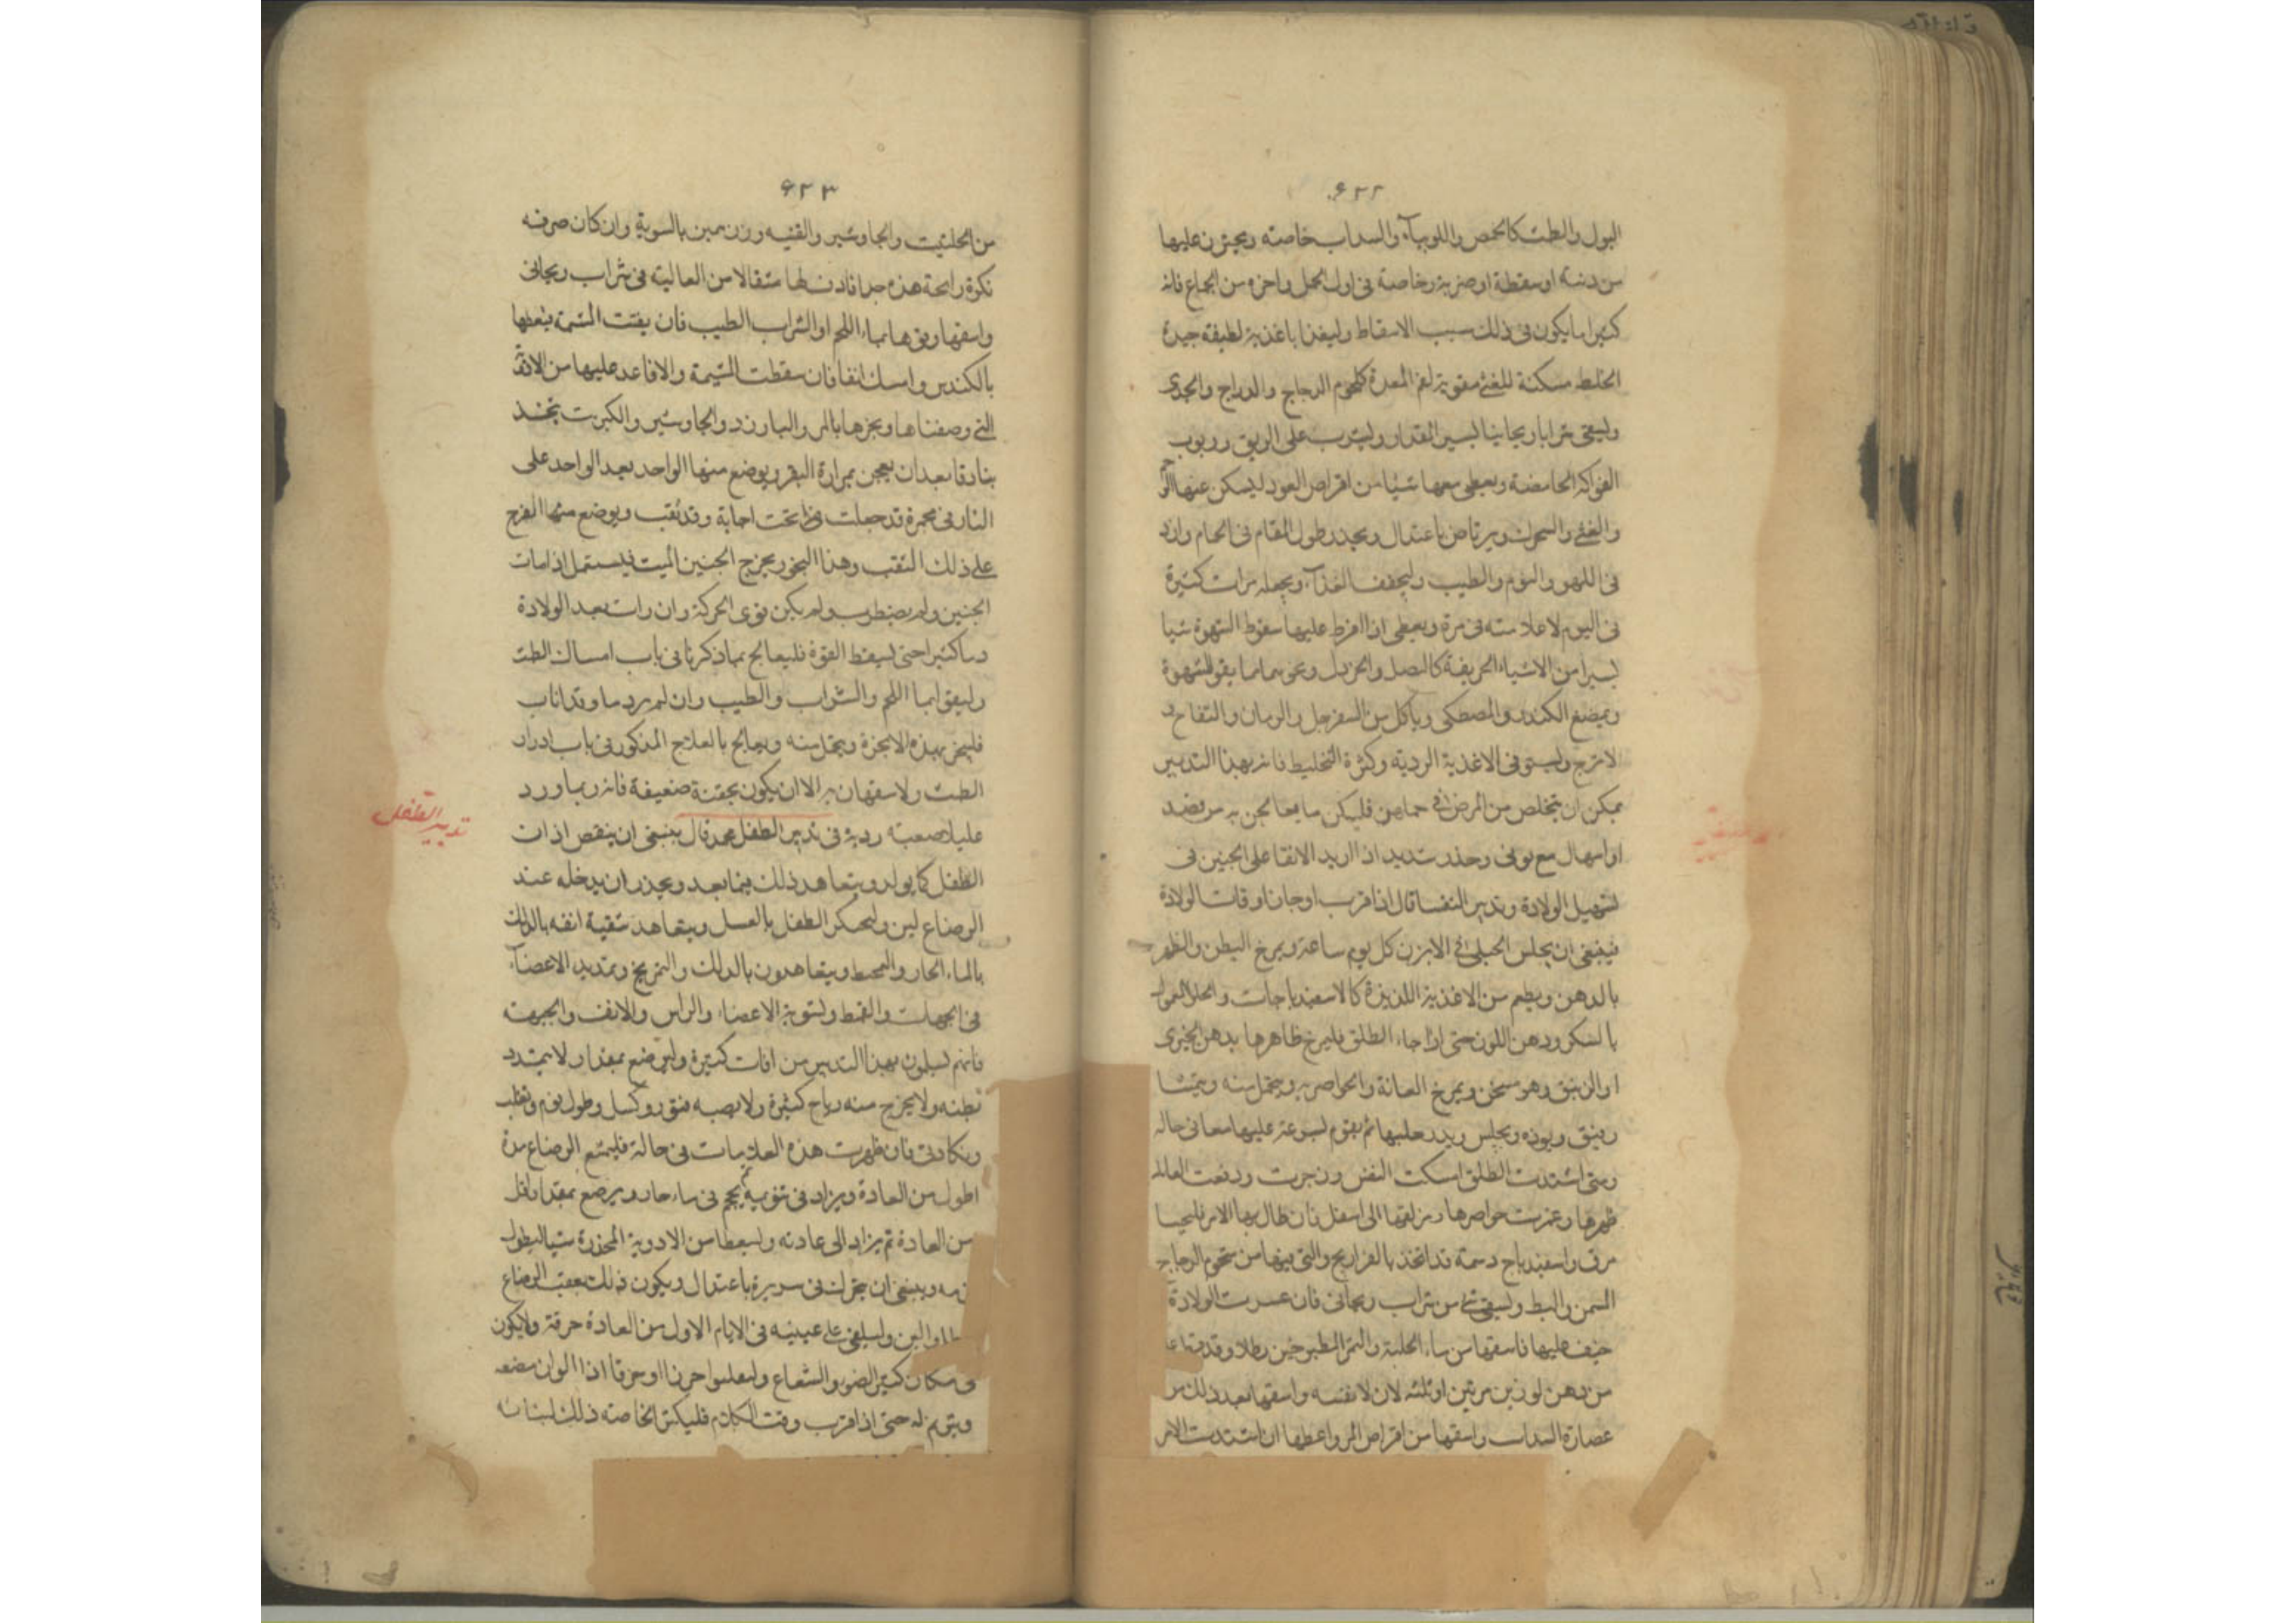 ٦٢٢
البول والطمث كالحمص واللوبياء والسداب خاصته ويحترز عليها
من وثبته او سقطة او ضربة وخاصة فى اول الحمل واخره من الجماع فانه
كثيرا ما يكون فى ذلك سبب الاسقاط وليغذا باغذية لطيفة جيدة
الخلط مسكنة للغثى مقوية لفم المعدة كلحوم الدجاج والدراج والجدى
وليسقى شرابا ريحانيا ليسير المقدار وليشرب على الريق وربوب
الفواكه الحامضة ويعطى معها شيئا من اقراص العود ليسكن عنها
والغثى والتحرك ويرتاض باعتدال ويحذر طول المقام فى الحمام وازد
فى اللهو والنوم والطيب وليخفف الغذاء ويجعله مرات كثيرة
فى اليوم لا علامته فى مرة ويعطى اذا افرط عليها سقوط الشهوة شيا
يسيرا من الاشياء الحريفة كالبصل والخردل ونحوهما مما يقو الشهوة
ويمضغ الكندر والمصطكى وياكل من السفرجل والرمان والتفاح و
الاترج وليستوفى الاغذية الردية وكثرة التخليط فانه بهذا التدبير
يمكن ان يتخلص من المرض فى حملهن فليكن ما يعالجن به من فصد
او اسهال مع توقى وحذر شديد اذا اريد الابقا على الجنين فى
تسهيل الولادة وتدبير النفسا قال اذا قرب او حان اوقات الولادة
فينبغى ان يجلس الحبلى فى الابزن كل يوم ساعة ويمرخ البطن والظهر
بالدهن ويطعم من الاغذية اللذيذة كالاسفيدباجات والحلو المعمول
بالسكر ودهن اللوز حتى اذا جاء الطلق فليمرخ ظاهرها بدهن الخيرى
او الزنبق وهو مسخن ويمرخ العانة والخواصر به ويتحمل منه ويتمشا
برفق وتوده ويجلس ويمدد رجليها ثم يقوم بسرعة عليها معا فى حاله
ومتى اشتدت الطلق امسكت النفس وزجرت ودفعت القابلة
ظهرها وغمزت خواصرها ومراقها الى اسفل فان طال بها الامر فليحسا
مرق واسفيدباج دسمة قد اتخذ بالفراريج والتى فيها من شحوم الدجاج
السمن والبط وليسقى شى من شراب ريحانى فان عسرت الولادة
خيف عليها فاسقها من ماء الحلبة والتمر المطبوخين رطلا وقد
من دهن لوزين مرتين او ثلثه لان لا نفسه واسقها بعد ذلك من
عصارة السداب واسقها من اقراص المر واعطها ان اشتدت الامر
٦٢٣
من الحلتيت والجاوشير والقنه وزن درهمين بالسوية وان كان صرفه
نكرة رايحة هذه جدا فادف لها مثقالا من الغالية فى شراب ريحانى
واسقها وقوها بماء اللحم او الشراب الطيب فان بقيت المشيمة فعطسها
بالكندس وامسك انفا فان سقطت المشيمة والا فاعد عليها من الادوية
التى وصفناها وبخرها بالمر والبارزد والجاوشير والكبريت يتخذ
بنادقا بعد ان يعجن بمرارة البقر ويوضع منها الواحد بعد الواحد على
النار فى مجمرة قد جعلت تحت اجانة وقد ثقب ويوضع منها الفرج
على ذلك الثقب وهذا البخور يخرج الجنين الميت فيستعمل اذا مات
الجنين ولم يضطرب ولم يكن قوى الحركة وان رات بعد الولادة
دما كثيرا حتى ليسقط القوة فليعالج بما ذكرنا فى باب امساك الطمث
وليقوا بما اللحم والشراب والطيب وان لم يرد ما وقد اناب
فليبخر بهذه الابخرة ويتحمل منه ويعالج بالعلاج المذكور فى باب ادرار
الطمث ولا سقهان به الا ان يكون بحقنة ضعيفة فانه ربما ورد
عليلا صعبه ردية فى تدبير الطفل محمد قال ينبغى ان ينقص اذات
الطفل كما يولد ويتعاهد ذلك فيما بعد ويحذر ان يدخله عند
الرضاع لبن وليحنك الطفل بالعسل ويتعاهد تنقية انفه بالدلك
بالماء الحار والمحط ويتعاهدون بالدلك والتمريخ وتمديد الاعضاء
فى الجهات والقمط ولتسوية الاعضاء والراس والانف والجبهة
فانهم يسلمون بهذا التدبير من افات كثيرة وليرضع بمقدار لا يتمدد
بطنه ولا يخرج منه رياح كثيرة ولا يصبه فتور وكسل وطول نوم وتقلب
وبكا وقى فان ظهرت هذه العلامات فى حالة فليمنع الرضاع مدة
اطول من العادة ويزاد فى تنويمه ثم يحم فى ماء حار ويرضع بمقدار اقل
من العادة ثم يزاد الى عادته وليعطا من الادوية المخدرة شيا ليطول
نومه وينبغى ان يحرك فى سريره باعتدال ويكون ذلك بعقب الرضاع
والبن وليلقى على عينيه فى الايام الاول من العادة خرقة ولا يكون
فى مكان كثير الضوء والشعاع وليعلموا حرفا او خرقا اذا الوان
ويترنم له حتى اذا قرب وقت الكلام فليكن الحاضنة ذلك لسانه
تدبير الطفل